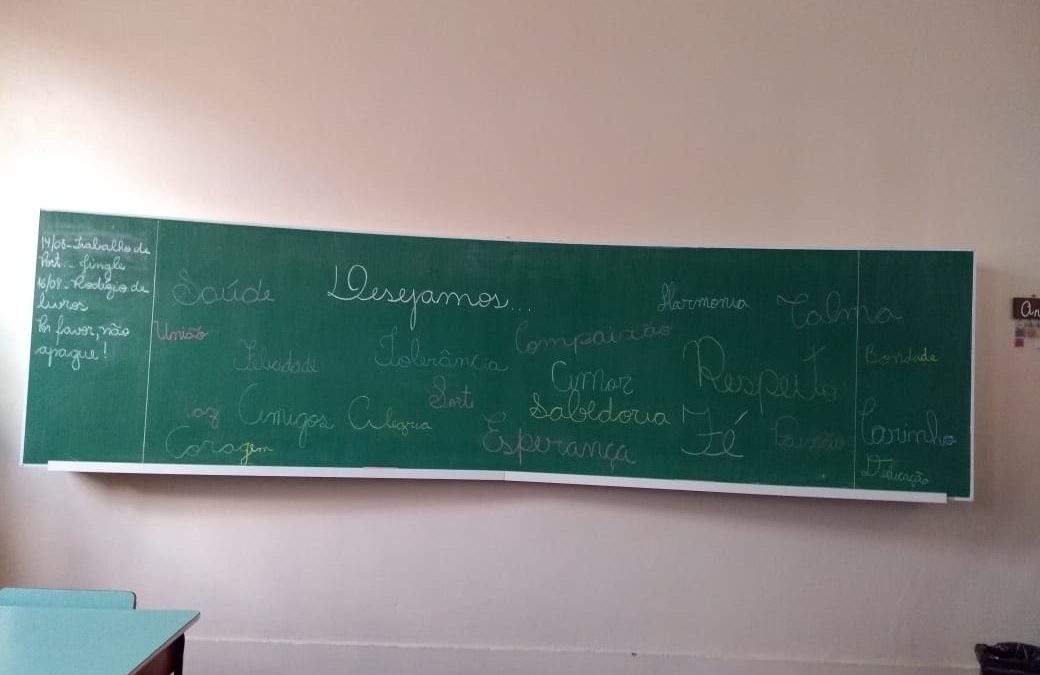 14/08 - Trabalho de
Port. - Jingle
16/08 - Rodízio de
livros
Por favor, não
apague!
Desejamos...
Saúde
Harmonia
Calma
União
Compaixão
Felicidade
Tolerância
Amor
Respeito
Bondade
Paz
Amigos
Alegria
Sorte
Sabedoria
Fé
Paixão
Carinho
Coragem
Esperança
Dedicação